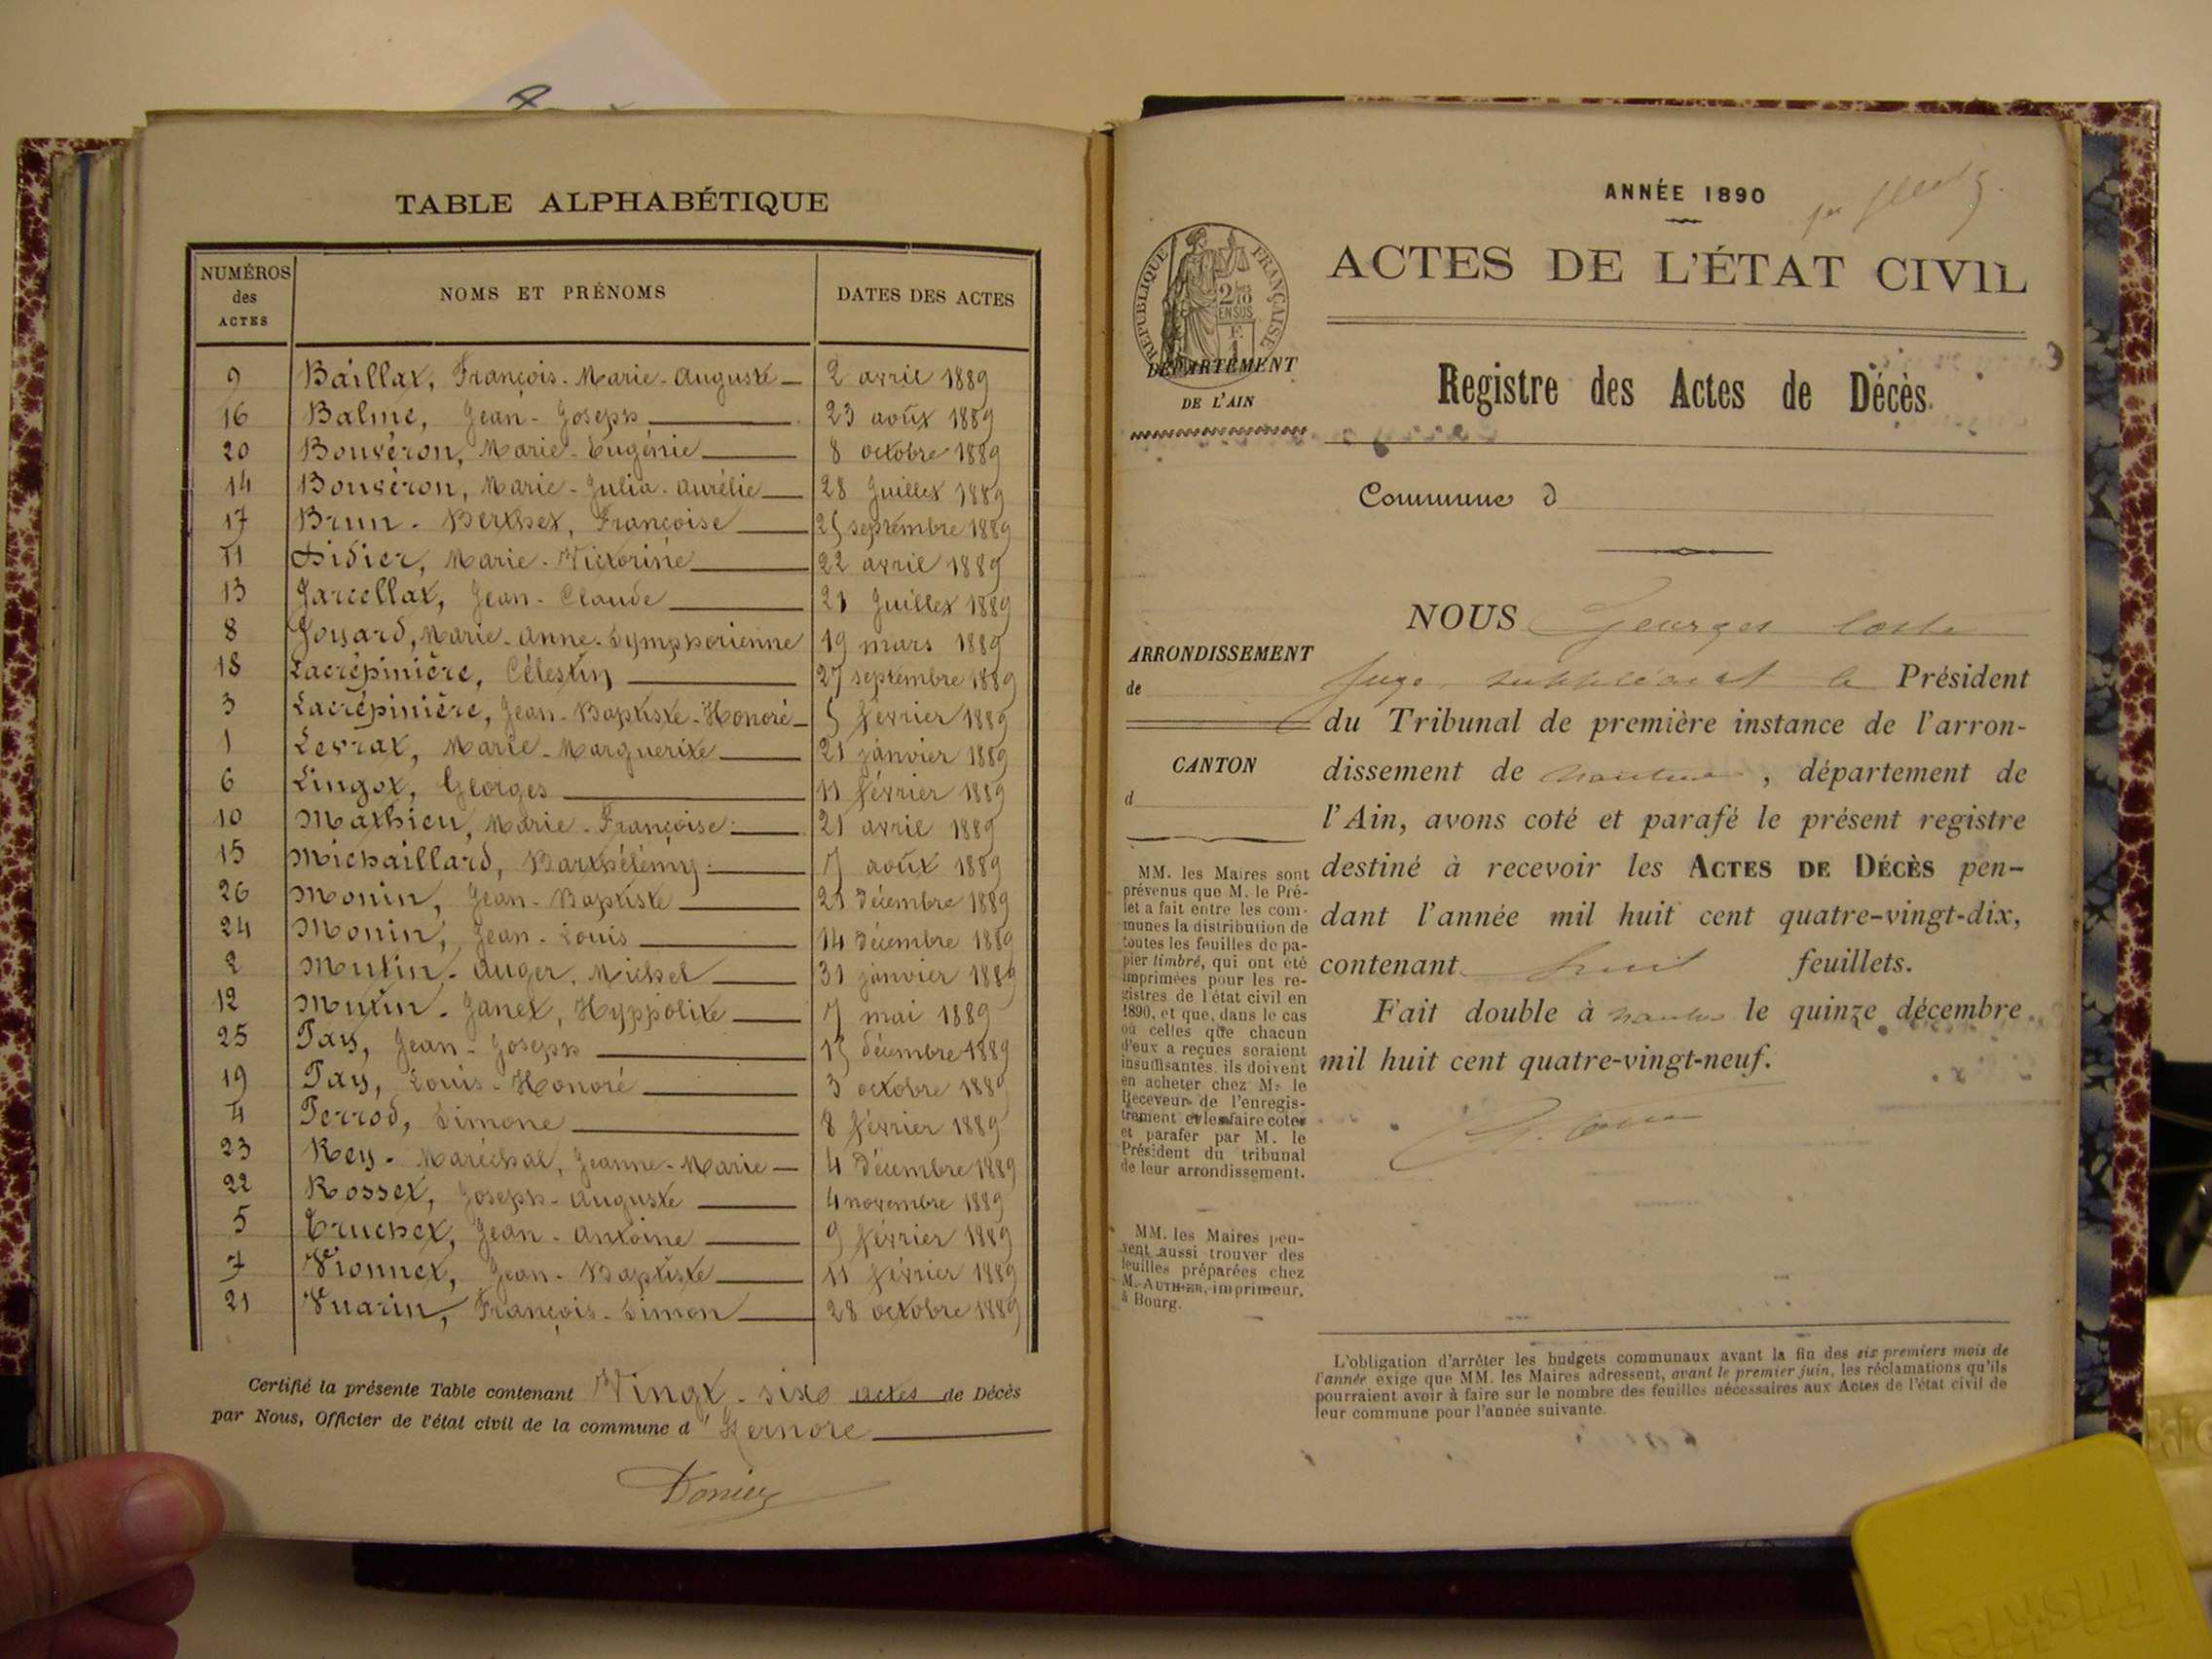 TABLE ALPHABÉTIQUE
NUMÉROS des ACTES NOMS ET PRÉNOMS DATES DES ACTES
9 Baillat, François-Marie-Auguste 2 avril 1889
16 Balme, Jean-Joseph 23 août 1889
20 Bouvéron, Marie-Eugénie 8 octobre 1889
14 Bouvéron, Marie-Julia-Aurélie 28 Juillet 1889
17 Brun-Berthet, Françoise 25 septembre 1889
11 Didier, Marie-Victorine 22 avril 1889
13 Jarcellat, Jean-Claude 21 Juillet 1889
8 Goyard, Marie-Anne-Symphorienne 19 mars 1889
18 Lacrépinière, Célestin 27 septembre 1889
3 Lacrépinière, Jean-Baptiste-Honoré 5 février 1889
1 Levrat, Marie-Marguerite 21 janvier 1889
6 Lingot, Georges 11 février 1889
10 Mathieu, Marie-Françoise 21 avril 1889
15 Michaillard, Barthélémy 7 août 1889
26 Monin, Jean-Baptiste 21 Décembre 1889
24 Monin, Jean-Louis 14 Décembre 1889
2 Mutin-Auger, Michel 31 janvier 1889
12 Mutin-Janet, Hyppolite 7 mai 1889
25 Pay, Jean-Joseph 15 décembre 1889
19 Pay, Louis-Honoré 3 octobre 1889
4 Perrod, Simone 8 février 1889
23 Rey-Maréchal, Jeanne-Marie 4 Décembre 1889
22 Rosset, Joseph-Auguste 4 novembre 1889
5 Truchet, Jean-Antoine 9 février 1889
7 Vionnet, Jean-Baptiste 11 février 1889
21 Vuarin, François-Simon 28 octobre 1889
Certifié la présente Table contenant Vingt-six actes de Décès
par Nous, Officier de l'état civil de la commune d'Izernore
ANNÉE 1890
RÉPUBLIQUE FRANÇAISE
2/10 EN SUS
ACTES DE L'ÉTAT CIVIL
DÉPARTEMENT
DE L'AIN
Registre des Actes de Décès
Commune d
ARRONDISSEMENT
de
CANTON
d
MM. les Maires sont
prévenus que M. le Pré-
fet a fait entre les com-
munes la distribution de
toutes les feuilles de pa-
pier timbré, qui ont été
imprimées pour les re-
gistres de l'état civil en
1890, et que, dans le cas
où celles que chacun
d'eux a reçues seraient
insuffisantes, ils doivent
en acheter chez M. le
Receveur de l'enregis-
trement et les faire coter
et parafer par M. le
Président du tribunal
de leur arrondissement.
MM. les Maires peu-
vent aussi trouver des
feuilles préparées chez
M. AUTHIER, imprimeur,
à Bourg.
NOUS Georges Coste
Juge suppléant le Président
du Tribunal de première instance de l'arron-
dissement de Nantua, département de
l'Ain, avons coté et parafé le présent registre
destiné à recevoir les ACTES DE DÉCÈS pen-
dant l'année mil huit cent quatre-vingt-dix,
contenant huit feuillets.
Fait double à Nantua le quinze décembre
mil huit cent quatre-vingt-neuf.
L'obligation d'arrêter les budgets communaux avant la fin des six premiers mois de
l'année exige que MM. les Maires adressent, avant le premier juin, les réclamations qu'ils
pourraient avoir à faire sur le nombre des feuilles nécessaires aux Actes de l'état civil de
leur commune pour l'année suivante.